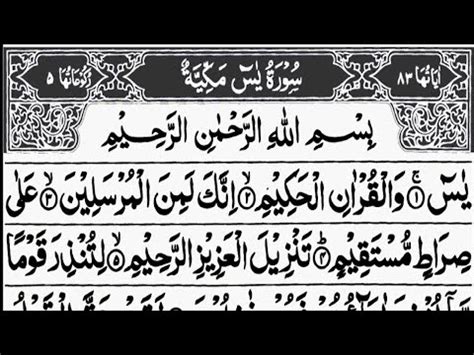 اٰیَاتُهَا ٨٣ سُوْرَةُ يٰسٓ مَكِّيَّةٌ رُكُوْعَاتُهَا ٥
بِسْمِ اللهِ الرَّحْمٰنِ الرَّحِيْمِ
يٰسٓ ۚ ﴿١﴾ وَالْقُرْاٰنِ الْحَكِيْمِ ۙ ﴿٢﴾ اِنَّكَ لَمِنَ الْمُرْسَلِيْنَ ۙ ﴿٣﴾ عَلٰى
صِرَاطٍ مُّسْتَقِيْمٍ ؕ ﴿٤﴾ تَنْزِيْلَ الْعَزِيْزِ الرَّحِيْمِ ۙ ﴿٥﴾ لِتُنْذِرَ قَوْمًا